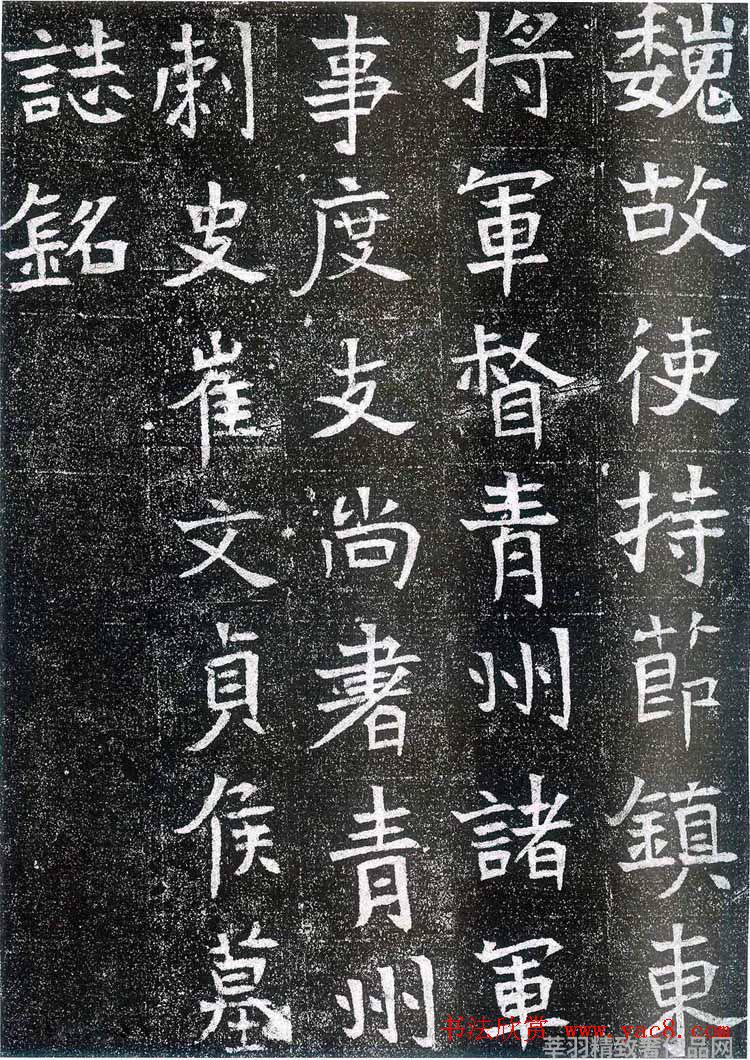 魏故使持節鎮東
将軍督青州諸軍
事度支尚書青州
刺史崔文貞侯墓
誌銘
书法欣赏 www.yac8.com